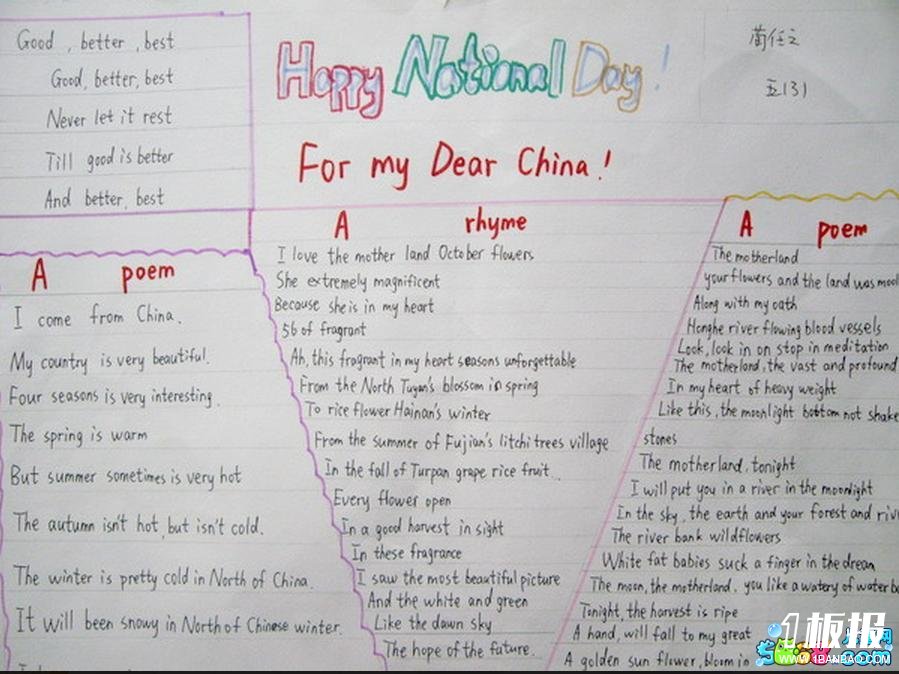 Good , better , best
Good, better, best
Never let it rest
Till good is better
And better, best
Happy National Day !
For my Dear China !
五131
A poem
I come from China.
My country is very beautiful.
Four seasons is very interesting.
The spring is warm
But summer sometimes is very hot
The autumn isn't hot, but isn't cold.
The winter is pretty cold in North of China.
It will been snowy in North of Chinese winter.
A rhyme
I love the mother land October flowers
She extremely magnificent
Because she is in my heart
56 of fragrant
Ah, this fragrant in my heart seasons unforgettable
From the North Tuyan's blossom in spring
To rice flower Hainan's winter
From the summer of Fujian's litchi trees village
In the fall of Turpan grape rice fruit
Every flower open
In a good harvest in sight
In these fragrance
I saw the most beautiful picture
And the white and green
Like the dawn sky
The hope of the future.
A poem
The motherland
your flowers and the land was
Along with my oath
Honghe river flowing blood vessels
Look, look in on stop in meditation
The motherland, the vast and profound
In my heart of heavy weight
Like this, the moonlight bottom not shake
stones
The motherland, tonight
I will put you in a river in the moonlight
In the sky, the earth and your forest and
The river bank wildflowers
White fat babies suck a finger in the dream
The moon, the motherland, you like a watery of water
Tonight, the harvest is ripe
A hand, will fall to my great
A golden sun flower, bloom in
1板报
WWW.1BANBAO.COM